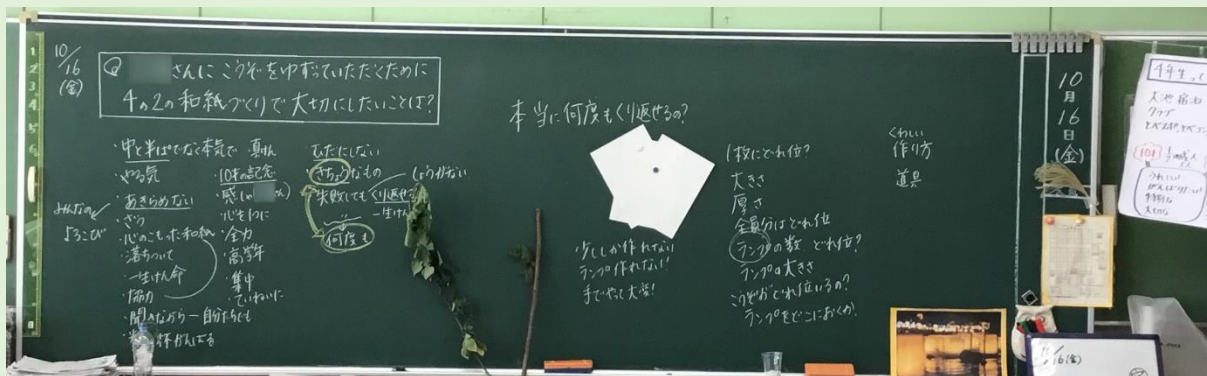 10/16(金)
Q さんに こうぞをゆずっていただくために
4の2の和紙づくりで大切にしたいことは?
・中と半ぱでなく本気で 真けん
・やる気
・あきらめない
・心のこもった和紙
・落ちついて
・一生けん命
・協力
・聞きながら―自分たちでも
みんなの
よろこび
・10才の記念
・心を1つに
・全力
・高学年
・集中
・ていねいに
・むだにしない
・きちょうなもの
・失敗しても くり返せ
しょうがない
何度も
本当に何度もくり返せるの?
少ししか作れない
ランプ作れない!
手でやって大変!
1枚にどれ位?
大きさ
厚さ
全員分はどれ位
ランプの数 どれ位?
ランプの大きさ
こうぞがどれ位いるの?
ランプをどこにおくか?
くわしい
作り方
道具
10月16日(金)
4年生
クラブ
10才
うれしい!
がんばりたい!
特別な
大切な